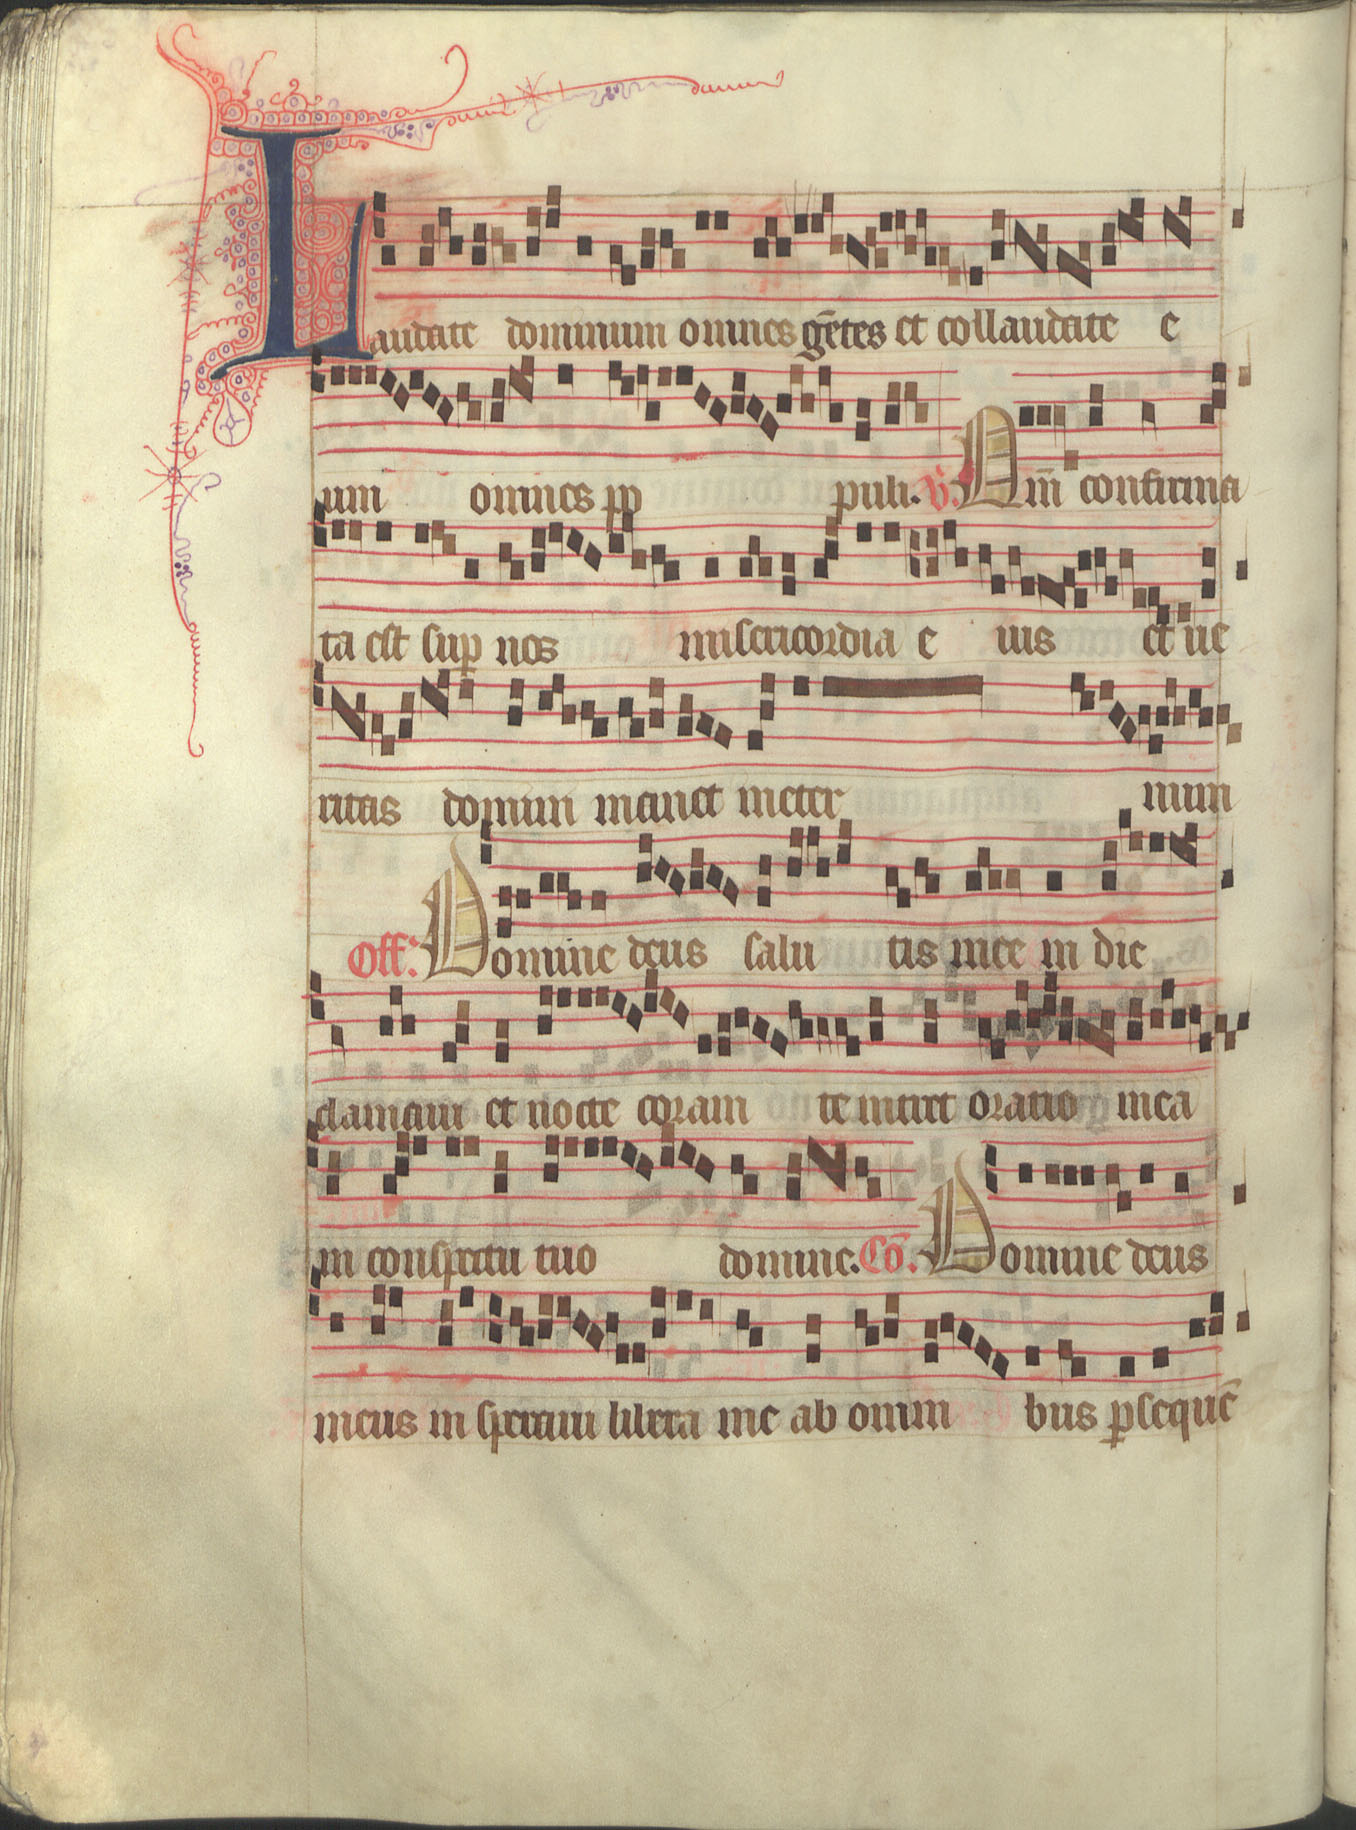 Laudate dominum omnes gētes et collaudate e
um omnes po puli. V̄. Qm̄ confirma
ta est sup nos misericordia e ius et ue
ritas domini manet ineter num
Off. Domine deus salu tis mee in die
clamaui et nocte coram te intret oratio mea
in conspectu tuo domine. Cō. Domine deus
meus in speraui libera me ab omni bus psequē